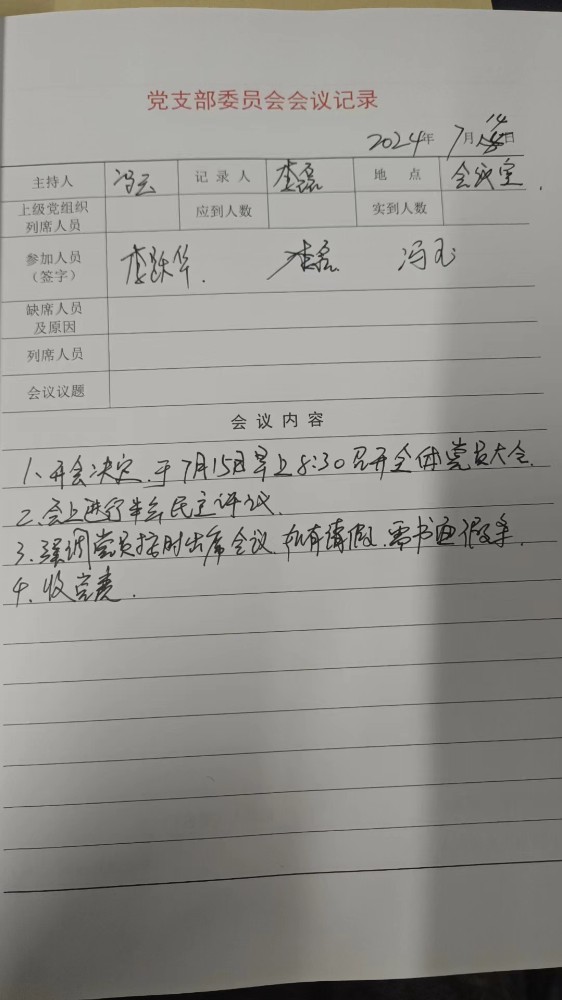 党支部委员会会议记录
2024年7月14日
主持人 冯玉 记录人 李磊 地点 会议室.
上级党组织列席人员 应到人数 实到人数
参加人员(签字) 李跃华. 李磊 冯玉
缺席人员及原因
列席人员
会议议题
会议内容
1、开会决定.于7月15日早上8:30召开全体党员大会.
2、会上进行 民主评议.
3、强调党员按时出席会议.如有请假.需书面假条.
4、收党费.